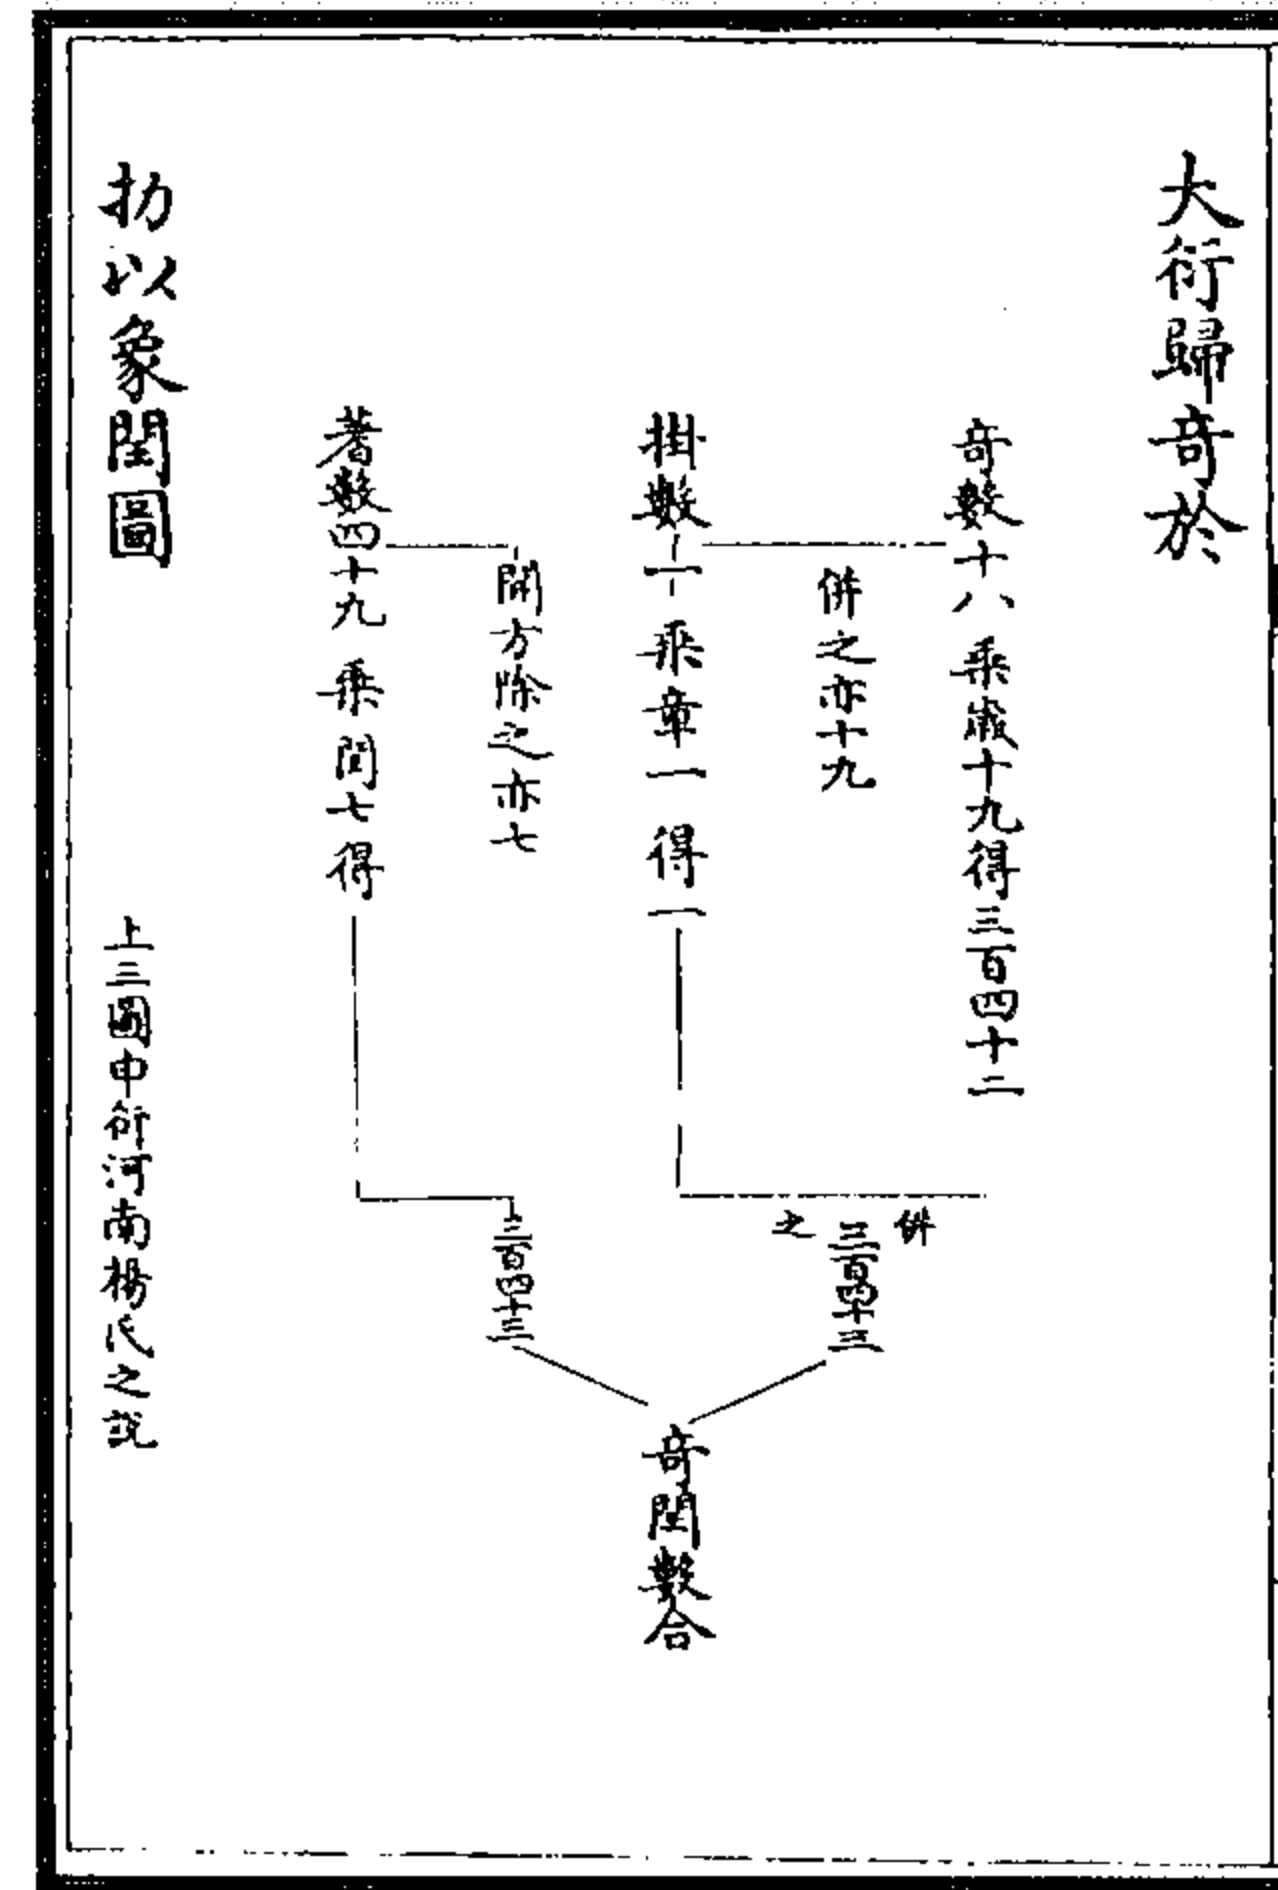 大衍歸奇於
奇數十八乘歲十九得三百四十二
併之亦十九
掛數一乘章一得一
併之
三百四十三
開方除之亦七
蓍數四十九乘閏七得
三百四十三
奇閏數合
扐以象閏圖
上三圖申衍河南楊氏之說